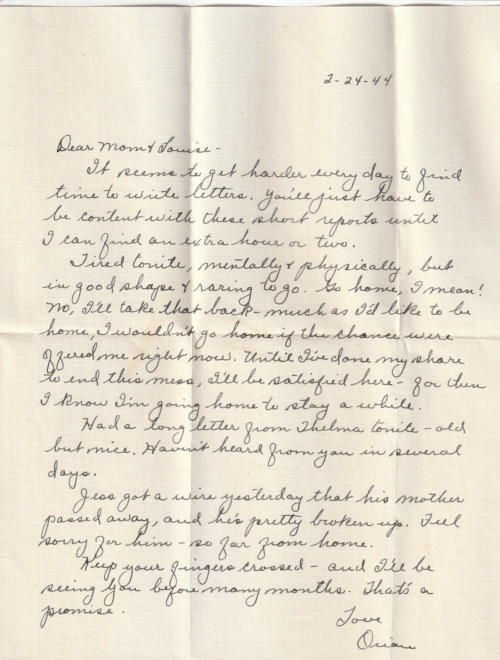 2-24-44
Dear Mom & Louise -
It seems to get harder every day to find
time to write letters. You'll just have to
be content with these short reports until
I can find an extra hour or two.
Tired tonite, mentally & physically, but
in good shape & raring to go. Go home, I mean!
No, I'll take that back - much as I'd like to be
home, I wouldn't go home if the chance were
offered me right now. Until I've done my share
to end this mess, I'll be satisfied here - for then
I know I'm going home to stay a while.
Had a long letter from Thelma tonite - old
but nice. Haven't heard from you in several
days.
Jess got a wire yesterday that his mother
passed away, and he's pretty broken up. Feel
sorry for him - so far from home.
Keep your fingers crossed - and I'll be
seeing you before many months. That's a
promise.
Love